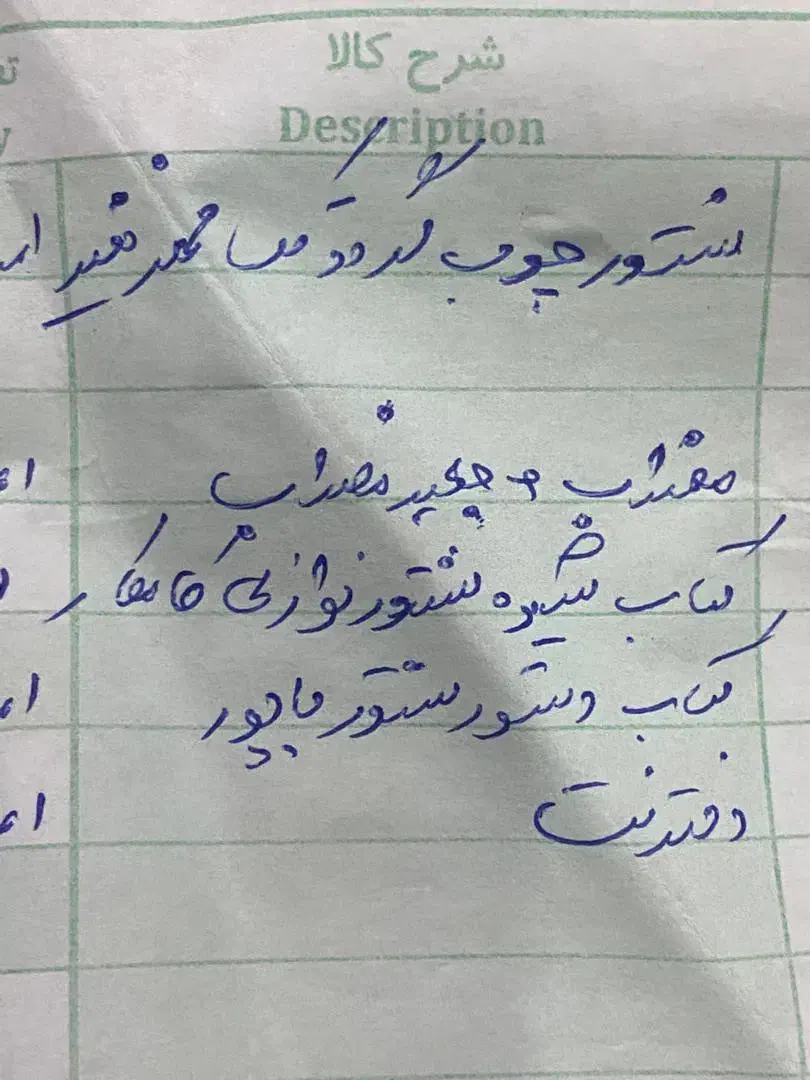 شرح کالا
Description
سنتور چوب گردو تک مهر
مضراب و جعبه مضراب
کتاب شیوه سنتور نوازی کامکار
کتاب دستور سنتور پایور
دفتر نت